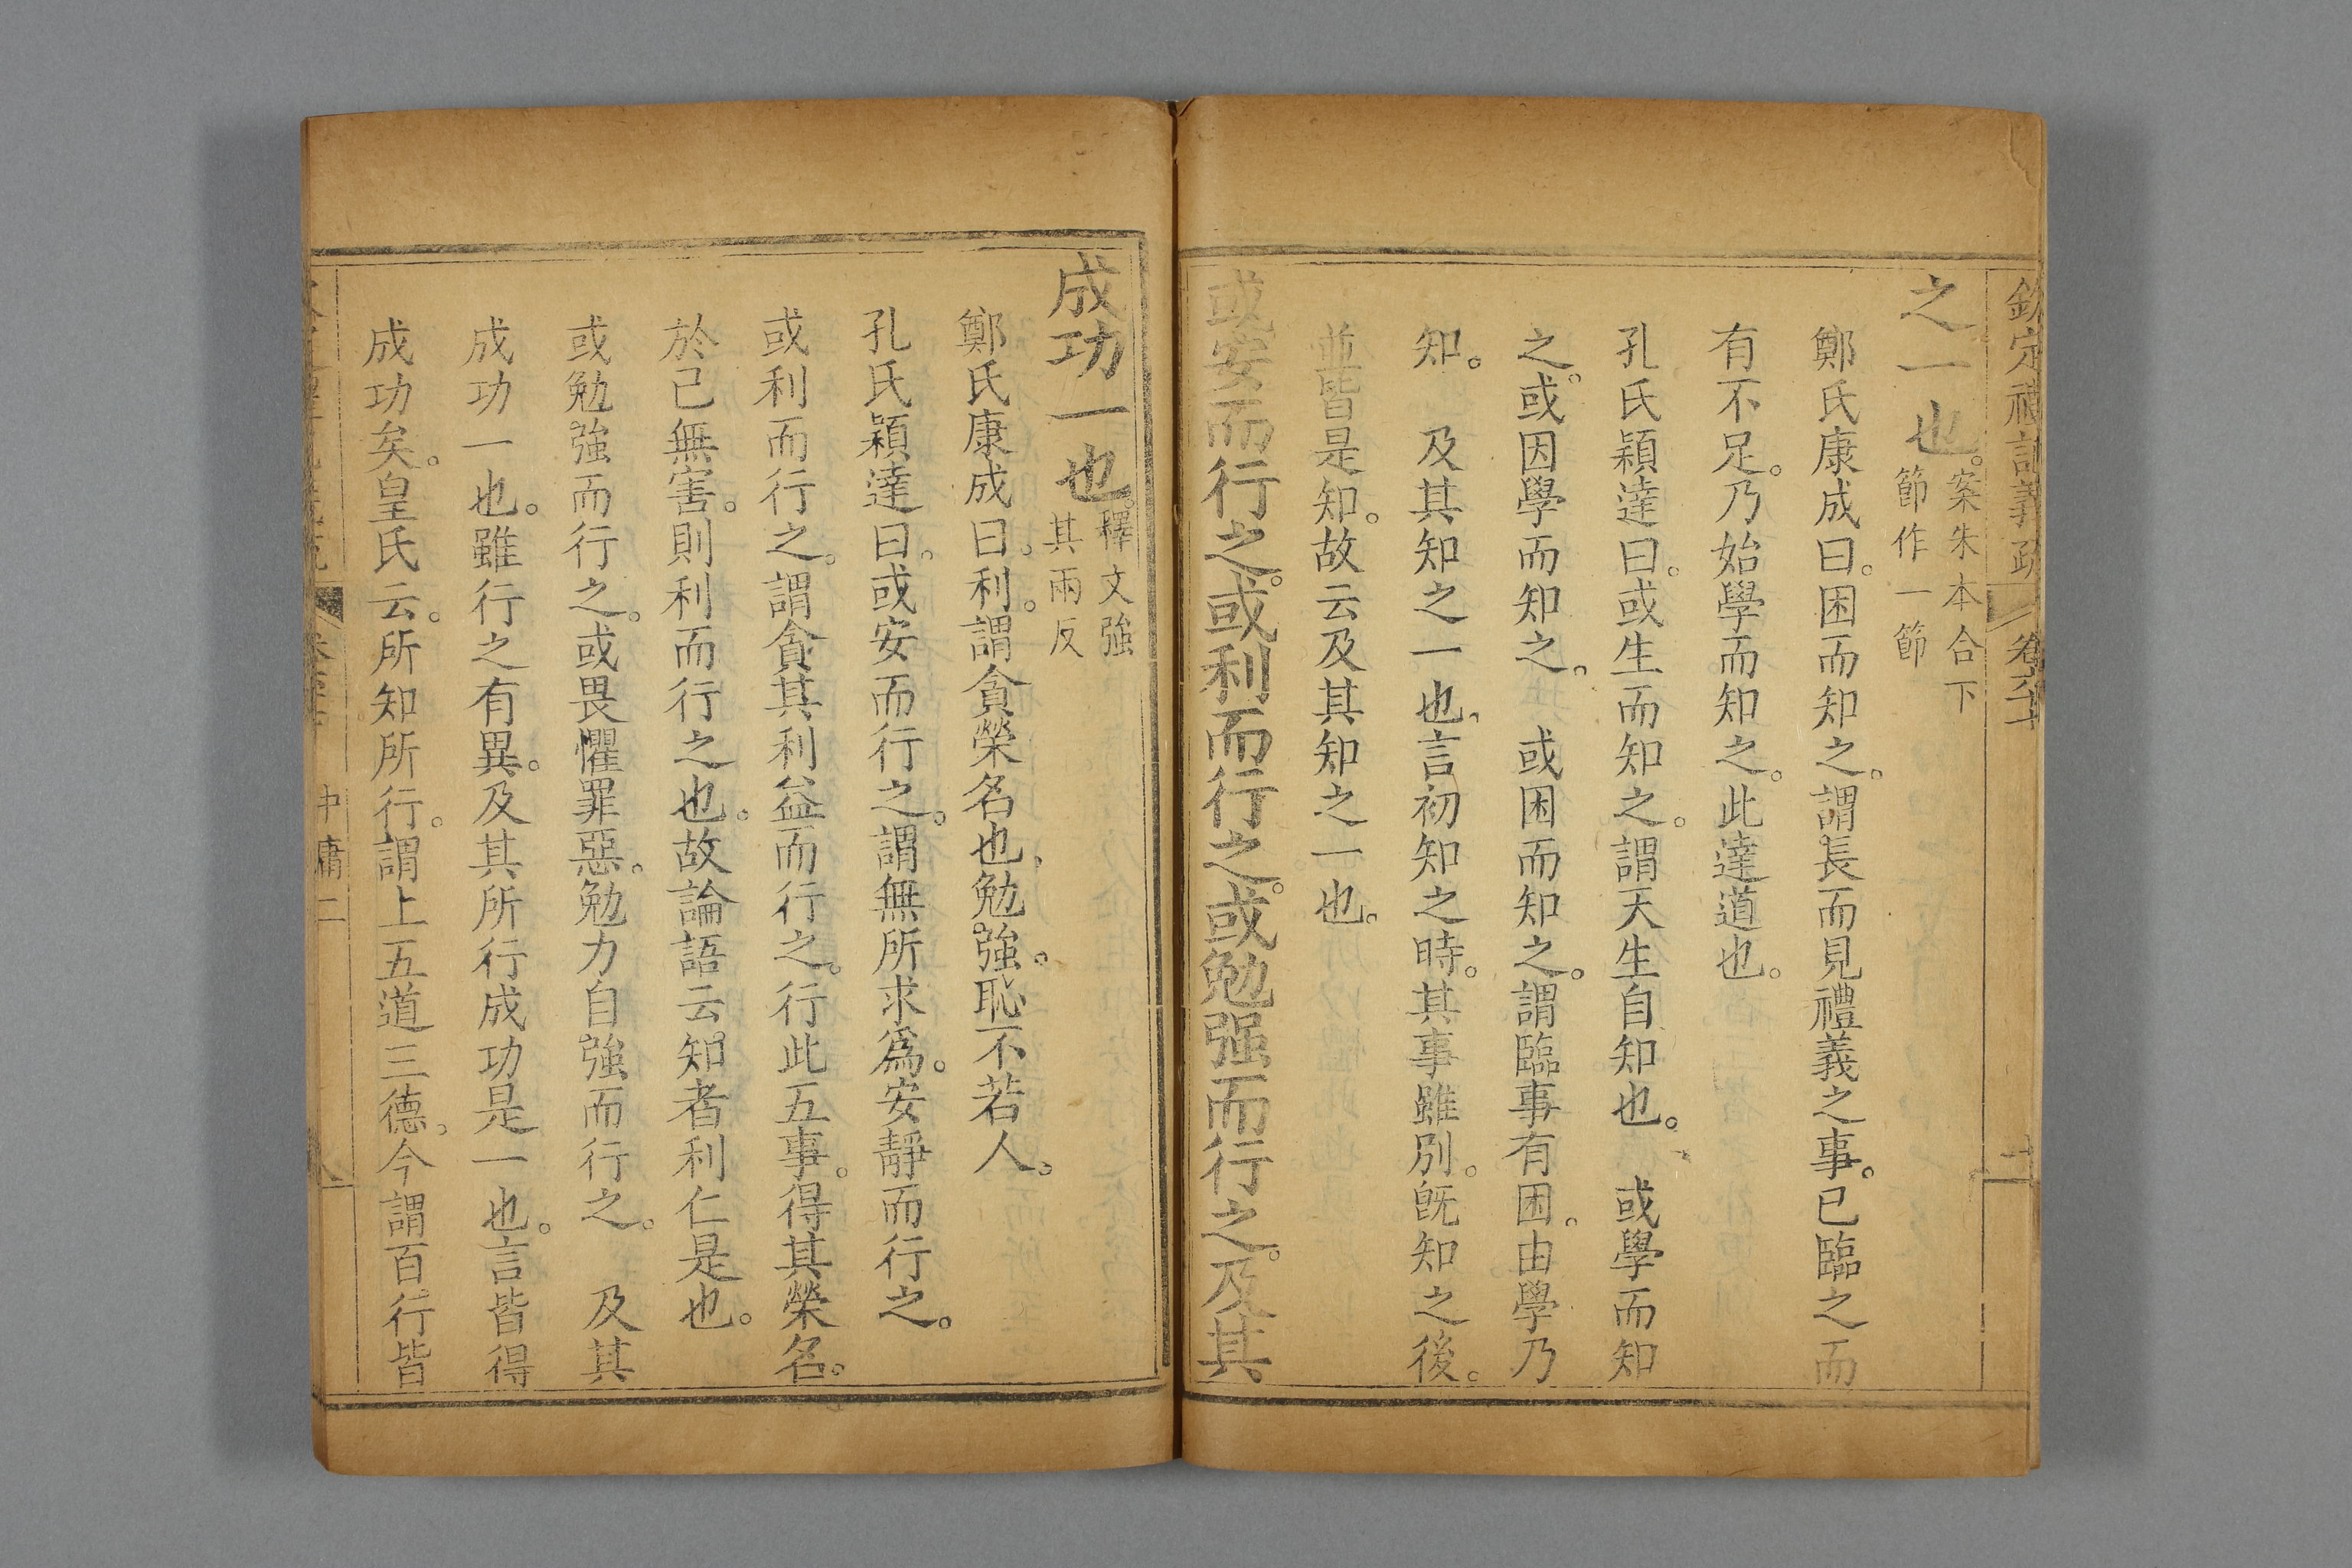 欽定禮記義疏 卷六十
之一也。案朱本合下
節作一節
鄭氏康成曰。困而知之。謂長而見禮義之事。已臨之而
有不足。乃始學而知之。此達道也。
孔氏穎達曰。或生而知之。謂天生自知也。 或學而知
之。或因學而知之。 或困而知之。謂臨事有困。由學乃
知。 及其知之一也。言初知之時。其事雖別。旣知之後。
並皆是知。故云及其知之一也。
或安而行之。或利而行之。或勉强而行之。及其
成功一也。釋文強
其兩反
鄭氏康成曰。利。謂貪榮名也。勉強。恥不若人。
孔氏穎達曰。或安而行之。謂無所求爲。安靜而行之。
或利而行之。謂貪其利益而行之。行此五事。得其榮名。
於己無害。則利而行之也。故論語云。知者利仁是也。
或勉強而行之。或畏懼罪惡。勉力自強而行之。 及其
成功一也。雖行之有異。及其所行成功是一也。言皆得
成功矣。皇氏云。所知所行。謂上五道三德。今謂百行皆
中庸二